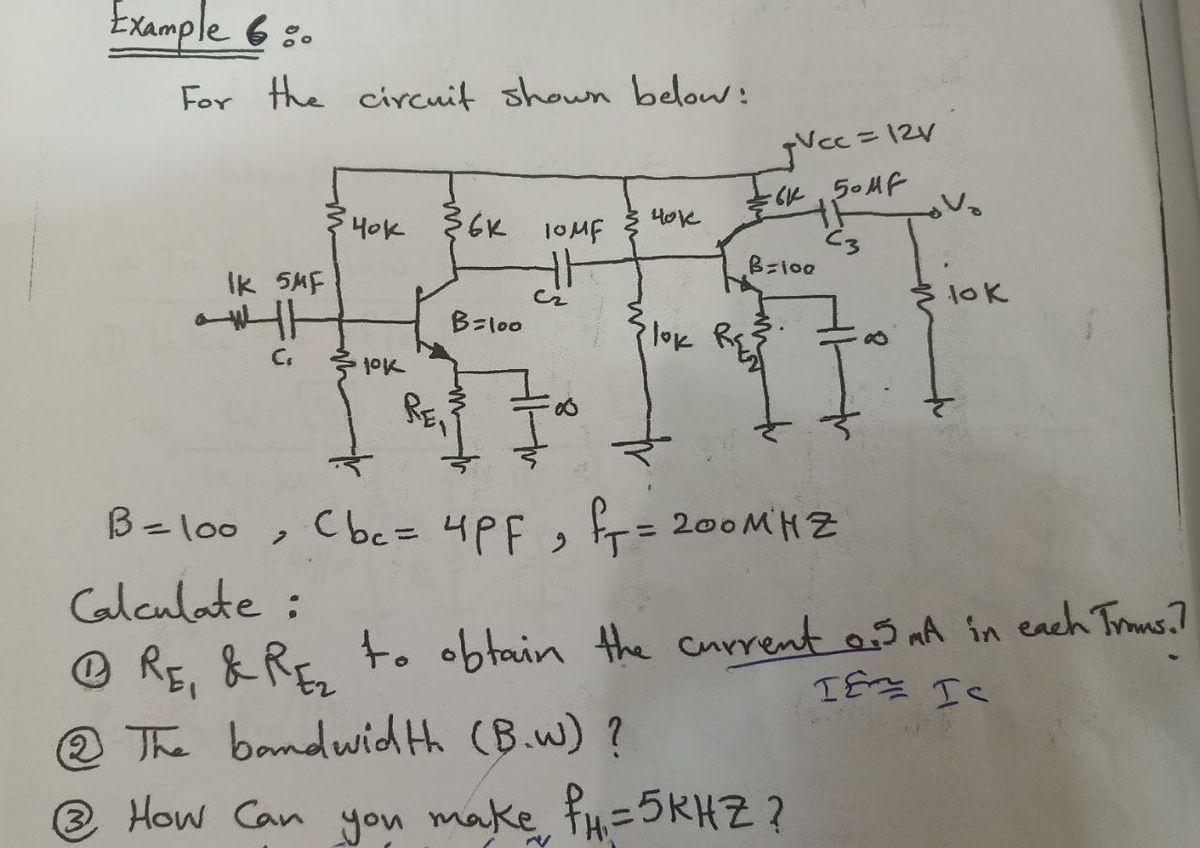 Example 6 :.
For the circuit shown below:
Vcc = 12V
40K 6K 10MF 40K 6K 50MF Vo
1K 5MF C2 B=100 C3
C1 B=100 10K 10K RE2 ∞ 10K
RE1 ∞
B=100 , Cbc= 4PF , fT= 200MHZ
Calculate :
① RE1 & RE2 to obtain the current 0.5 mA in each Trans.?
IE ≅ Ic
② The bandwidth (B.W) ?
③ How Can you make fH=5KHZ ?